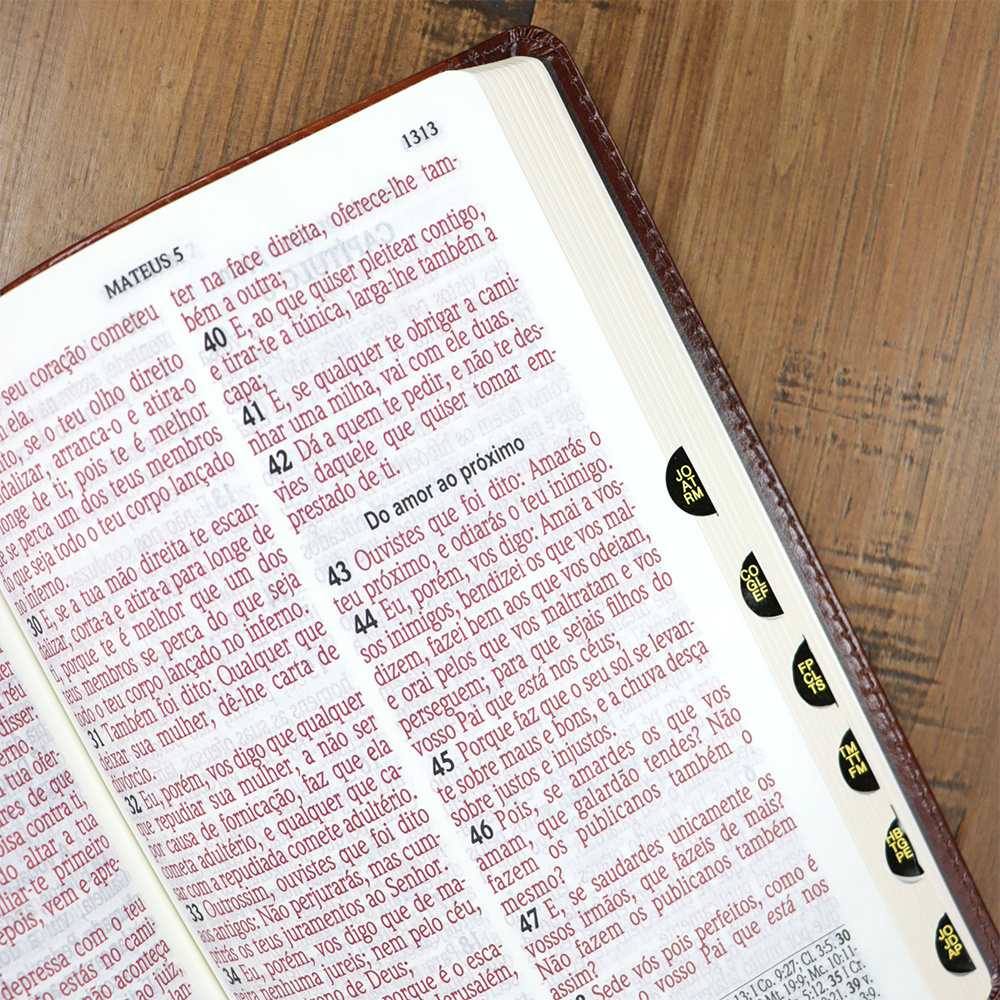 MATEUS 5
1313
réu
tisser:
erno,
tua ofer-
ares de que
oisa contra ti,
do altar a tua
liar-te primeiro
epois, vem e apre-
depressa com o teu
estás no cami-
aconteça
ao juiz,
seu coração cometeu
ela.
se o teu olho direito
arranca-o e atira-o
de ti; pois te é melhor
se perca um dos teus membros
do que seja todo o teu corpo lançado
no inferno.
30 E, se a tua mão direita te escan-
dalizar, corta-a e atira-a para longe de
ti, porque te é melhor que um dos
teus membros se perca do que seja
todo o teu corpo lançado no inferno.
31 Também foi dito: Qualquer que
deixar sua mulher, dê-lhe carta de
divórcio.
32 Eu, porém, vos digo que qualquer
que repudiar sua mulher, a não ser
por causa de fornicação, faz que ela
cometa adultério, e qualquer que ca-
sar com a repudiada comete adultério.
33 Outrossim, ouvistes que foi dito
aos antigos: Não perjurarás, mas cum-
prirás os teus juramentos ao Senhor.
34 Eu, porém, vos digo que de ma-
neira nenhuma jureis; nem pelo céu,
porque é o esca-
Jerusalém,
ter na face direita, oferece-lhe tam-
bém a outra;
40 E, ao que quiser pleitear contigo,
e tirar-te a túnica, larga-lhe também a
capa;
41 E, se qualquer te obrigar a cami-
nhar uma milha, vai com ele duas.
42 Dá a quem te pedir, e não te des-
vies daquele que quiser tomar em-
prestado de ti.
Do amor ao próximo
43 Ouvistes que foi dito: Amarás o
teu próximo, e odiarás o teu inimigo.
44 Eu, porém, vos digo: Amai a vos-
sos inimigos, bendizei os que vos mal
dizem, fazei bem aos que vos odeiam,
e orai pelos que vos maltratam e vos
perseguem; para que sejais filhos do
vosso Pai que está nos céus;
45 Porque faz que o seu sol se levan-
te sobre maus e bons, e a chuva desça
sobre justos e injustos.
46 Pois, se amardes os que vos
amam, que galardão tendes? Não
fazem os publicanos também o
mesmo?
47 E, se saudardes unicamente os
vossos irmãos, que fazeis de mais?
Não fazem os publicanos também
assim?
Sede vós pois perfeitos, como é
o vosso Pai que está nos
1 Co. 9:27; Cl. 3:5. 30
Mt. 19:9; Mc 10:11-
5:12. 35 I Cr.
JO
AT
RM
CO
GL
EF
FP
CL
TS
TM
TT
FM
HB
TG
PE
JO
JD
AP